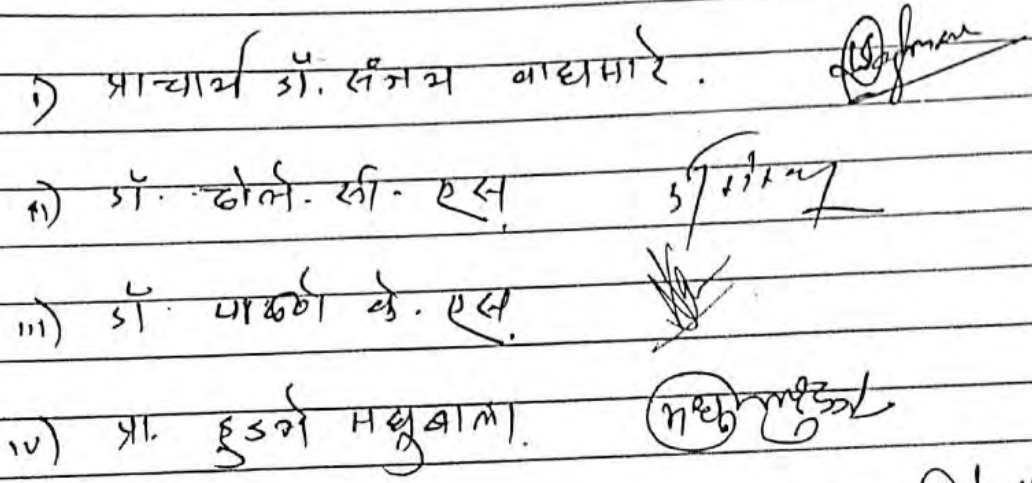 i) प्राचार्य डॉ. संजय वाघमारे.
ii) डॉ. ढोले. सी. एस.
iii) डॉ. पाळणे के. एस.
iv) प्रा. हुडगे मधुबाला.